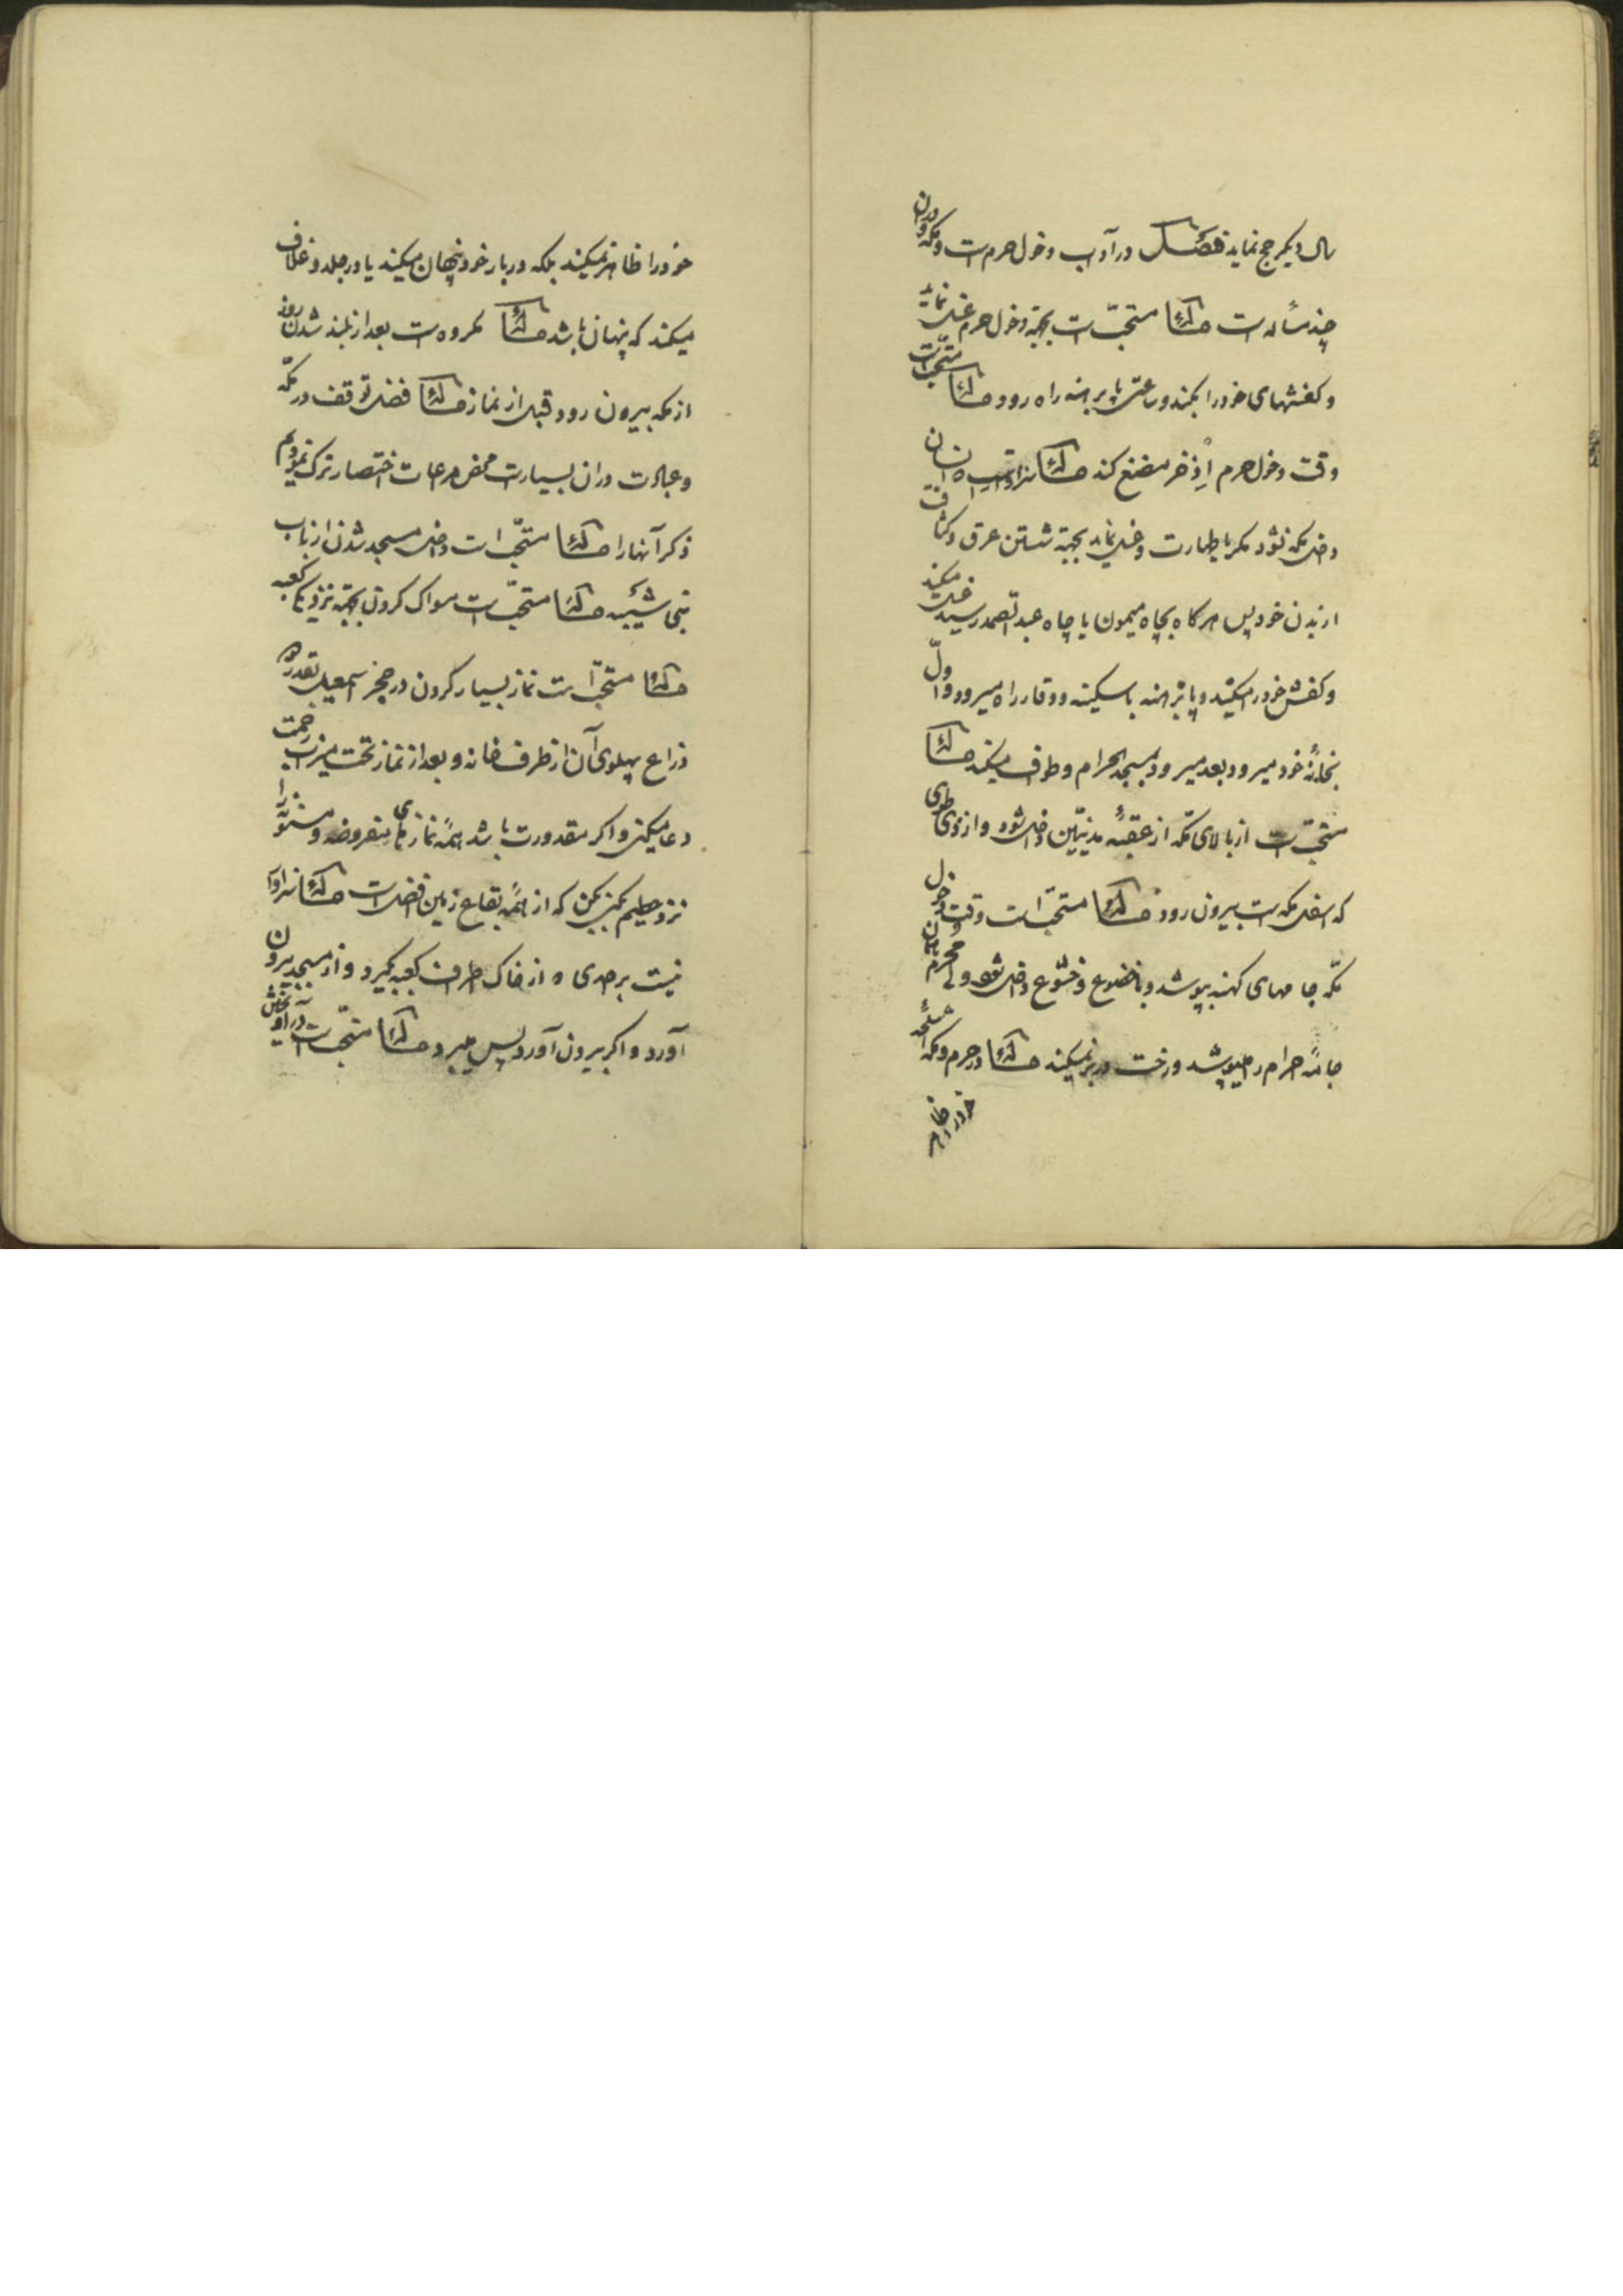 سال دیکر حج نماید فصل در آداب دخول حرمست و مکه و در آن
چند مسأله است مسئله مستحبّ است بجهة دخول حرم غسل نماید
و کفشهای خود را بکند و ساعتی پا برهنه راه رود مسئله مستحبّ است
وقت دخول حرم اِذخر مضغ کند مسئله سزاوار است انسان
داخل مکه نشود مکر با طهارت و غسل نماید بجهة شستن عرق و کثافت
از بدن خود پس هر کاه بچاه میمون یا چاه عبد الصمد رسید غسل میکند
و کفش خود را میکند و پا برهنه با سکینه و وقار راه میرود و اوّل
بخانهٔ خود میرود بعد میرود بمسجد الحرام و طواف میکند مسئله
مستحبّ است از بالای مکّه از عقبهٔ مدنیّین داخل شود و از ذی طوی
که اسفل مکه است بیرون رود مسئله مستحبّ است وقت دخول
مکّه جامهای کهنه بپوشد و با خضوع و خشوع داخل شود و لی محرم همان
جامهٔ احرام را میپوشد و رخت در بر نمیکند مسئله در حرم و مکه اسلحهٔ
خود را ظاهر
خود را ظاهر نمیکند بلکه در بار خود پنهان میکند یا در جلد و غلاف
میکند که پنهان باشد مسئله مکروه است بعد از بلند شدن روز
از مکه بیرون رود قبل از نماز مسئله فضل توقف در مکّه
و عبادت در آن بسیار است محض مراعات اختصار ترک نمودیم
ذکر آنها را مسئله مستحبّ است داخل مسجد شدن از باب
بنی شیبه مسئله مستحبّ است مسواک کردن بجهة نزدیک کعبه
مسئله مستحبّ است نماز بسیار کردن در حجر اسمعیل بقدر دو
ذراع پهلوی آن از طرف خانه و بعد از نماز تحت میزاب رحمت
دعا میکنی و اکر مقدورت باشد همهٔ نمازهای مفروضه و مسنونه را
نزد حطیم بکن بکن که از همهٔ بقاع زمین افضل است مسئله سزاوار
نیست بر احدی که از خاک اطراف کعبه بکیرد و از مسجد بیرون
آورد و اکر بیرون آورد پس میبرد مسئله مستحبّ است در آوردن